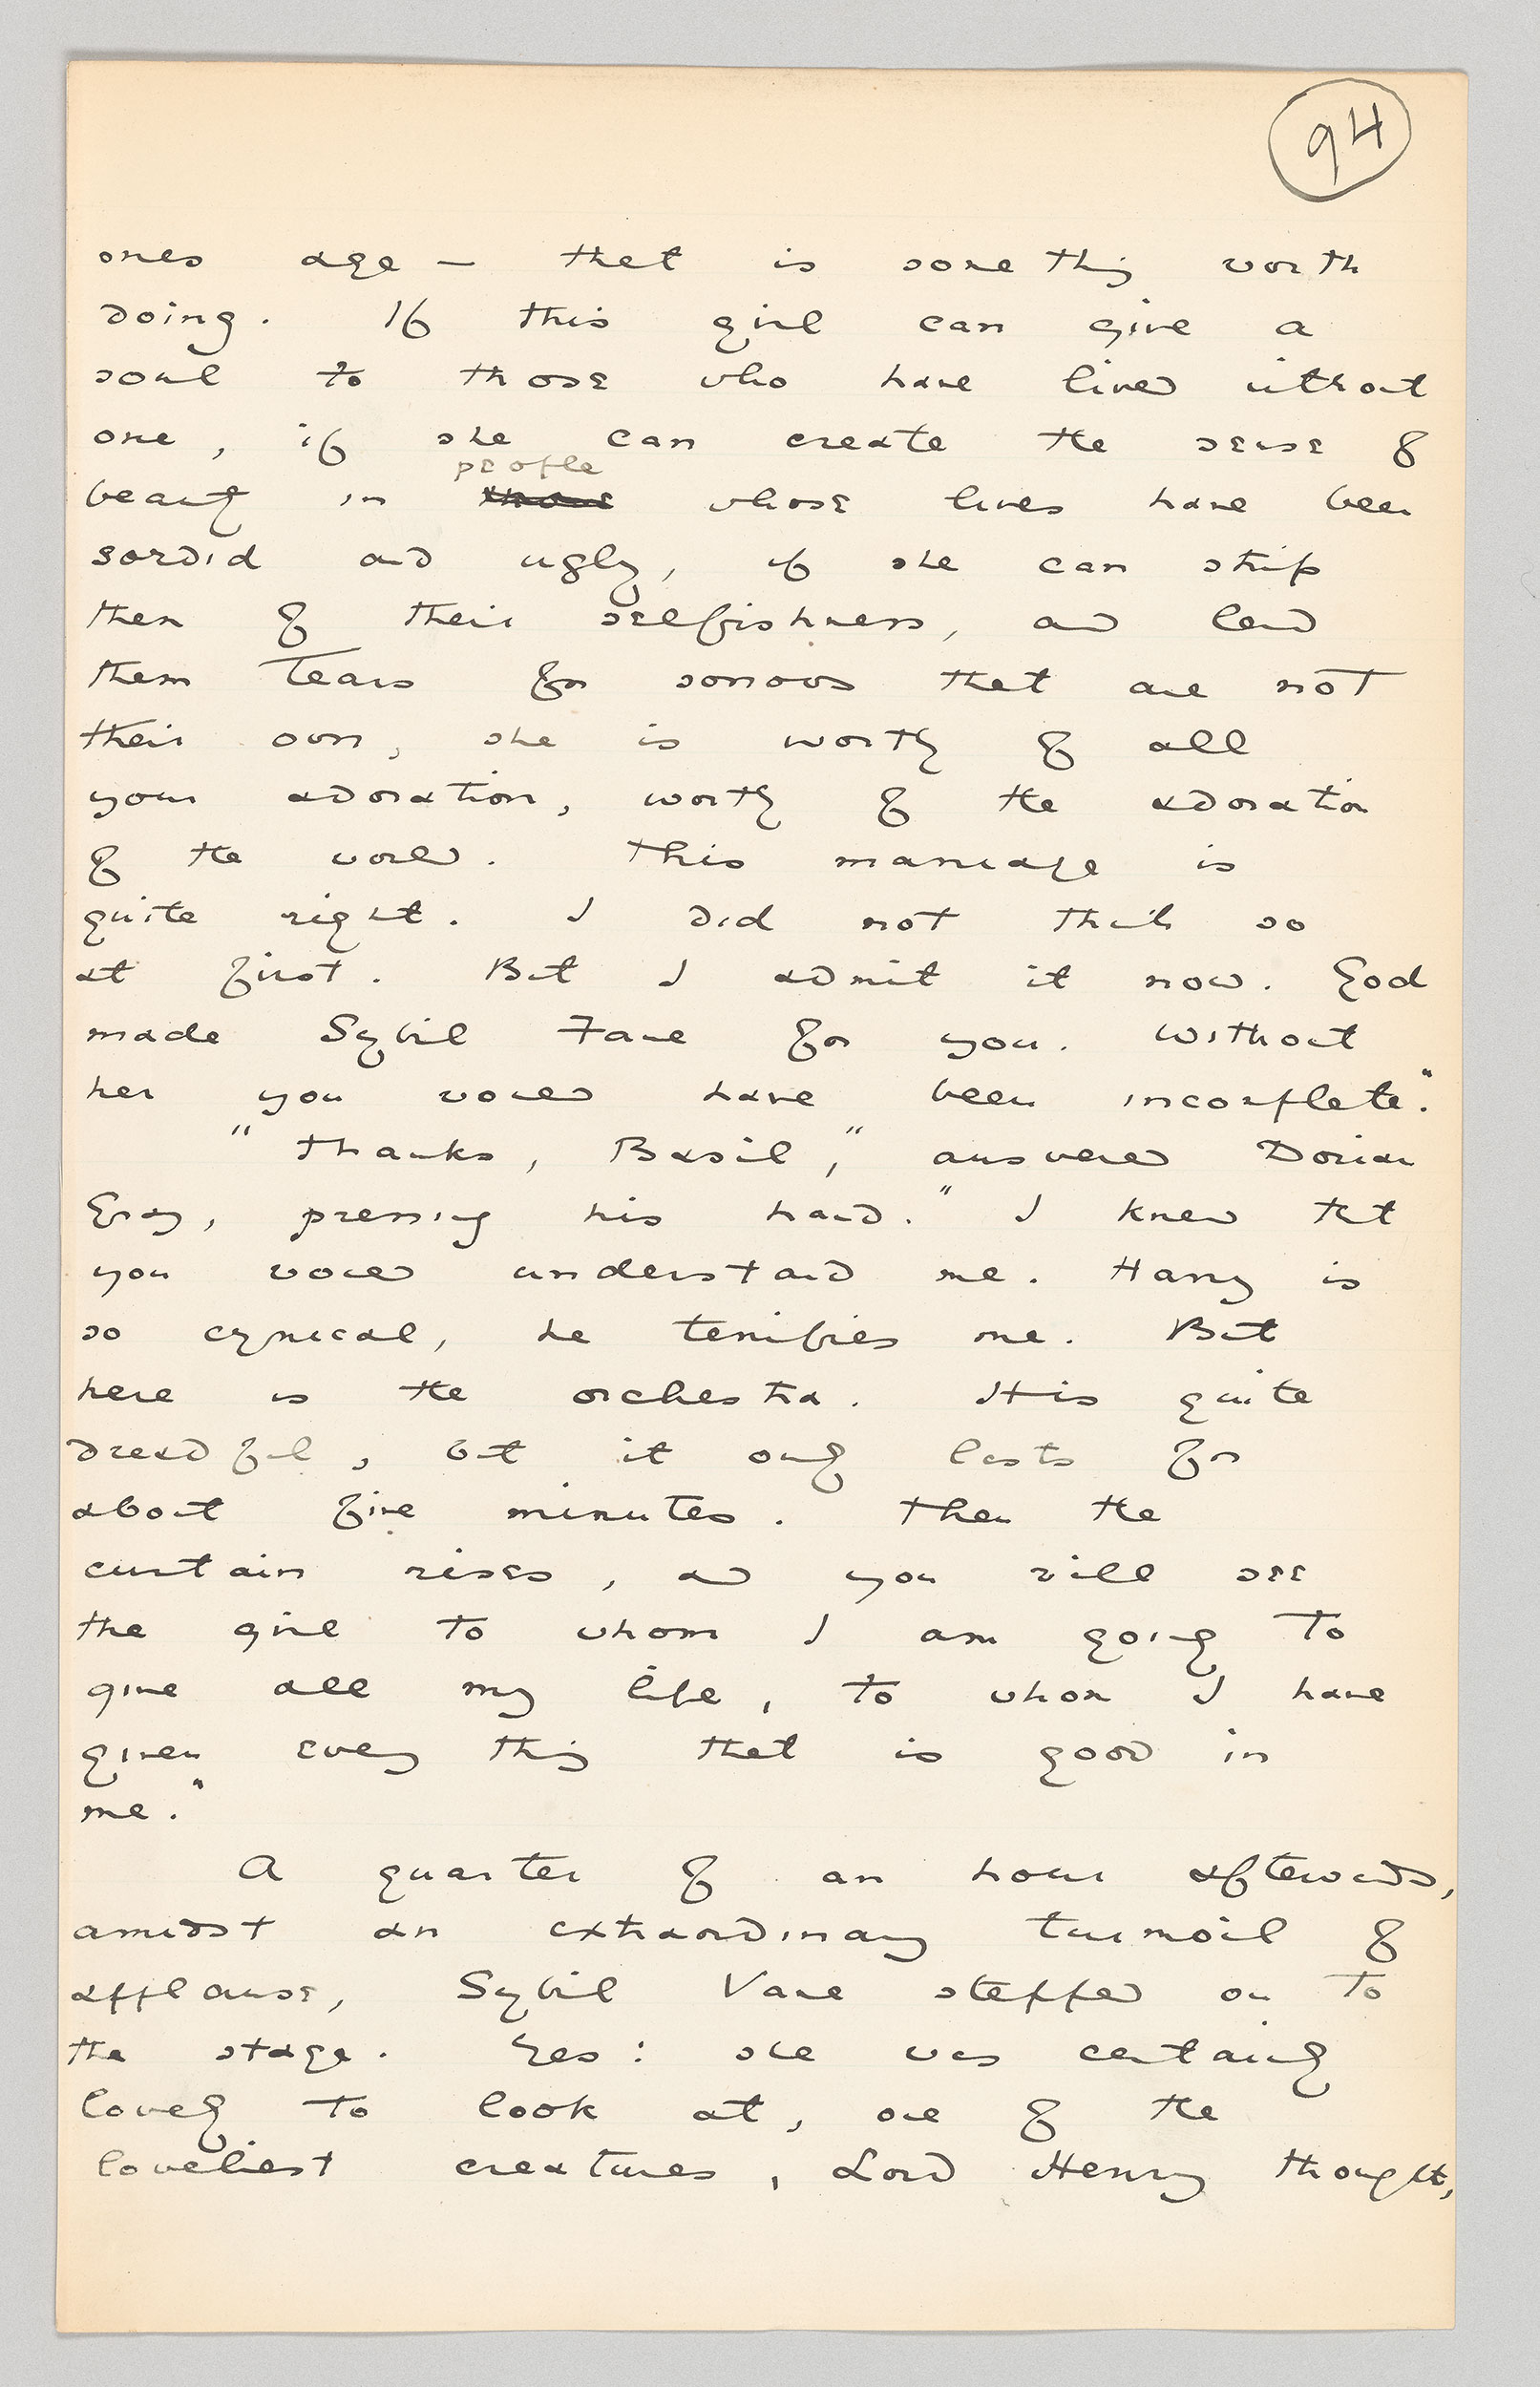 94
ones age — that is something worth
doing. If this girl can give a
soul to those who have lived without
one, if she can create the sense of
people
beauty in those whose lives have been
sordid and ugly, if she can strip
them of their selfishness, and lend
them tears for sorrows that are not
their own, she is worthy of all
your adoration, worthy of the adoration
of the world. This marriage is
quite right. I did not think so
at first. But I admit it now. God
made Sybil Fane for you. Without
her you would have been incomplete."
"Thanks, Basil," answered Dorian
Gray, pressing his hand. "I knew that
you would understand me. Harry is
so cynical, he terrifies me. But
here is the orchestra. It is quite
dreadful, but it only lasts for
about five minutes. Then the
curtain rises, and you will see
the girl to whom I am going to
give all my life, to whom I have
given every thing that is good in
me."
A quarter of an hour afterwards,
amidst an extraordinary turmoil of
applause, Sybil Vane stepped on to
the stage. Yes: she was certainly
lovely to look at, one of the
loveliest creatures, Lord Henry thought,